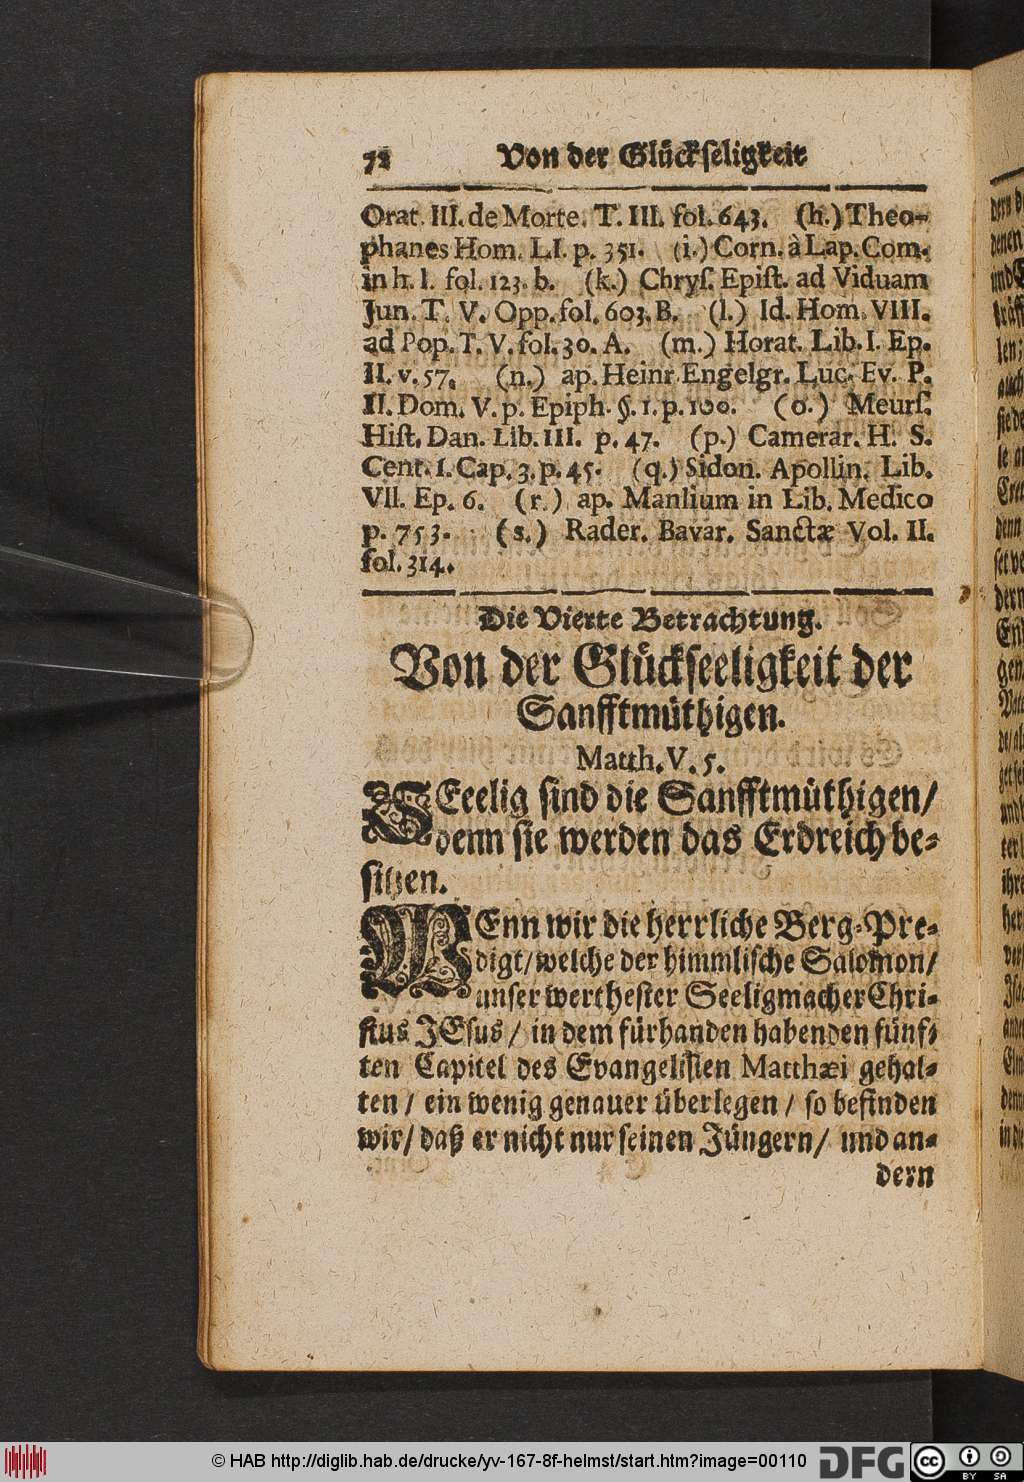 72 Von der Glückseligkeit
Orat. III. de Morte. T. III. fol. 643. (h.) Theo-
phanes Hom. LI. p. 351. (i.) Corn. à Lap. Com.
in h. l. fol. 123. b. (k.) Chryſ. Epiſt. ad Viduam
Jun. T. V. Opp. fol. 603. B. (l.) Id. Hom. VIII.
ad Pop. T. V. fol. 30. A. (m.) Horat. Lib. I. Ep.
II. v. 57. (n.) ap. Heinr. Engelgr. Luc. Ev. P.
II. Dom. V. p. Epiph. §. 1. p. 100. (o.) Meurſ.
Hiſt. Dan. Lib. III. p. 47. (p.) Camerar. H. S.
Cent. I. Cap. 3. p. 45. (q.) Sidon. Apollin. Lib.
VII. Ep. 6. (r.) ap. Manlium in Lib. Medico
p. 753. (s.) Rader. Bavar. Sanctæ Vol. II.
fol. 314.
Die Vierte Betrachtung.
Von der Glückſeeligkeit der
Sanfftmüthigen.
Matth. V. 5.
SEeelig ſind die Sanfftmüthigen/
denn ſie werden das Erdreich be-
ſitzen.
WEnn wir die herrliche Berg-Pre-
digt/ welche der himmliſche Salomon/
unſer wertheſter Seeligmacher Chri-
ſtus JEſus/ in dem fürhanden habenden fünf-
ten Capitel des Evangeliſten Matthæi gehal-
ten/ ein wenig genauer überlegen/ ſo befinden
wir/ daß er nicht nur ſeinen Jüngern/ und an-
dern
© HAB http://diglib.hab.de/drucke/yv-167-8f-helmst/start.htm?image=00110
DFG
cc BY SA